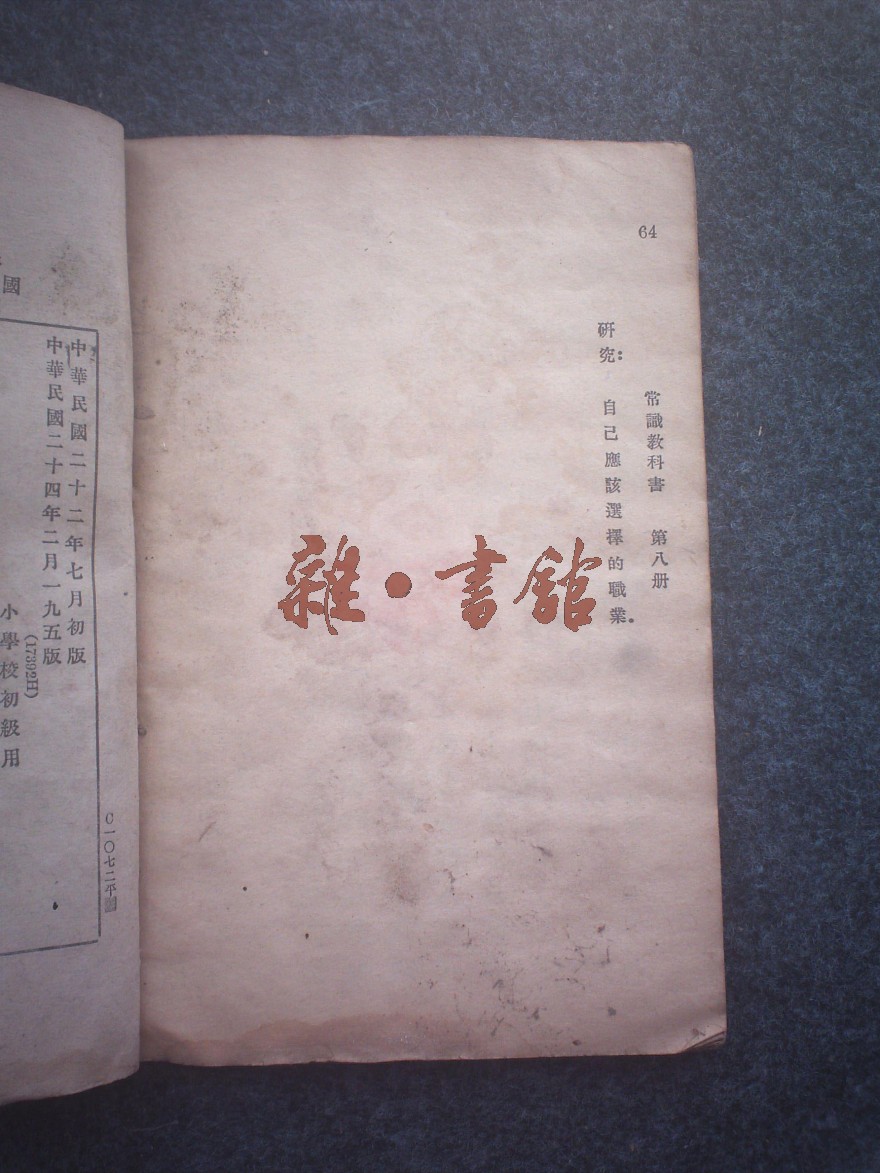 64
常識教科書 第八册
研究:
自己應該選擇的職業.
雜·書館
C一〇七二平
中華民國二十二年七月初版
中華民國二十四年二月一九五版
(17392H)
小學校初級用
國